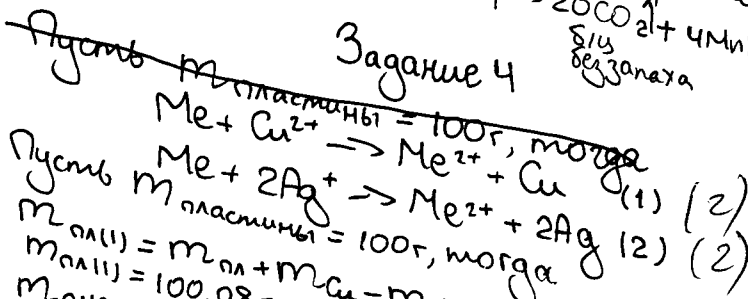 20CO₂↑ + 4Mn
б/ц
без запаха
Задание 4
Пусть m пластины = 100г, тогда
Me + Cu²⁺ → Me²⁺ + Cu (1) (2)
Me + 2Ag⁺ → Me²⁺ + 2Ag (2) (2)
Пусть m пластины = 100г, тогда
m пл(1) = m пл + m Cu –
m пл(1) = 100,98